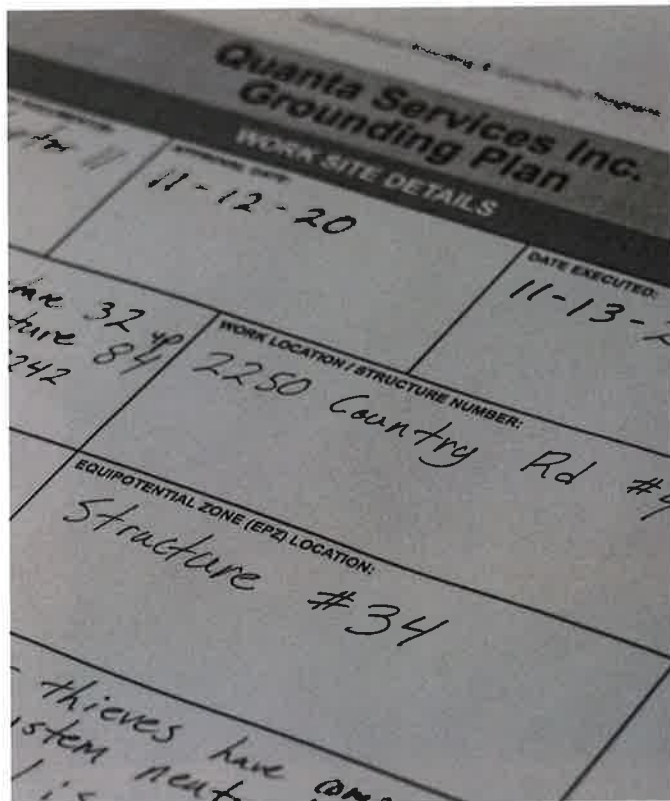 Quanta Services Inc.
Grounding Plan
WORK SITE DETAILS
APPROVAL DATE:
11-12-20
DATE EXECUTED:
11-13-2
32
84
242
WORK LOCATION / STRUCTURE NUMBER:
2250 Country Rd #4
EQUIPOTENTIAL ZONE (EPZ) LOCATION:
Structure #34
thieves have
neut